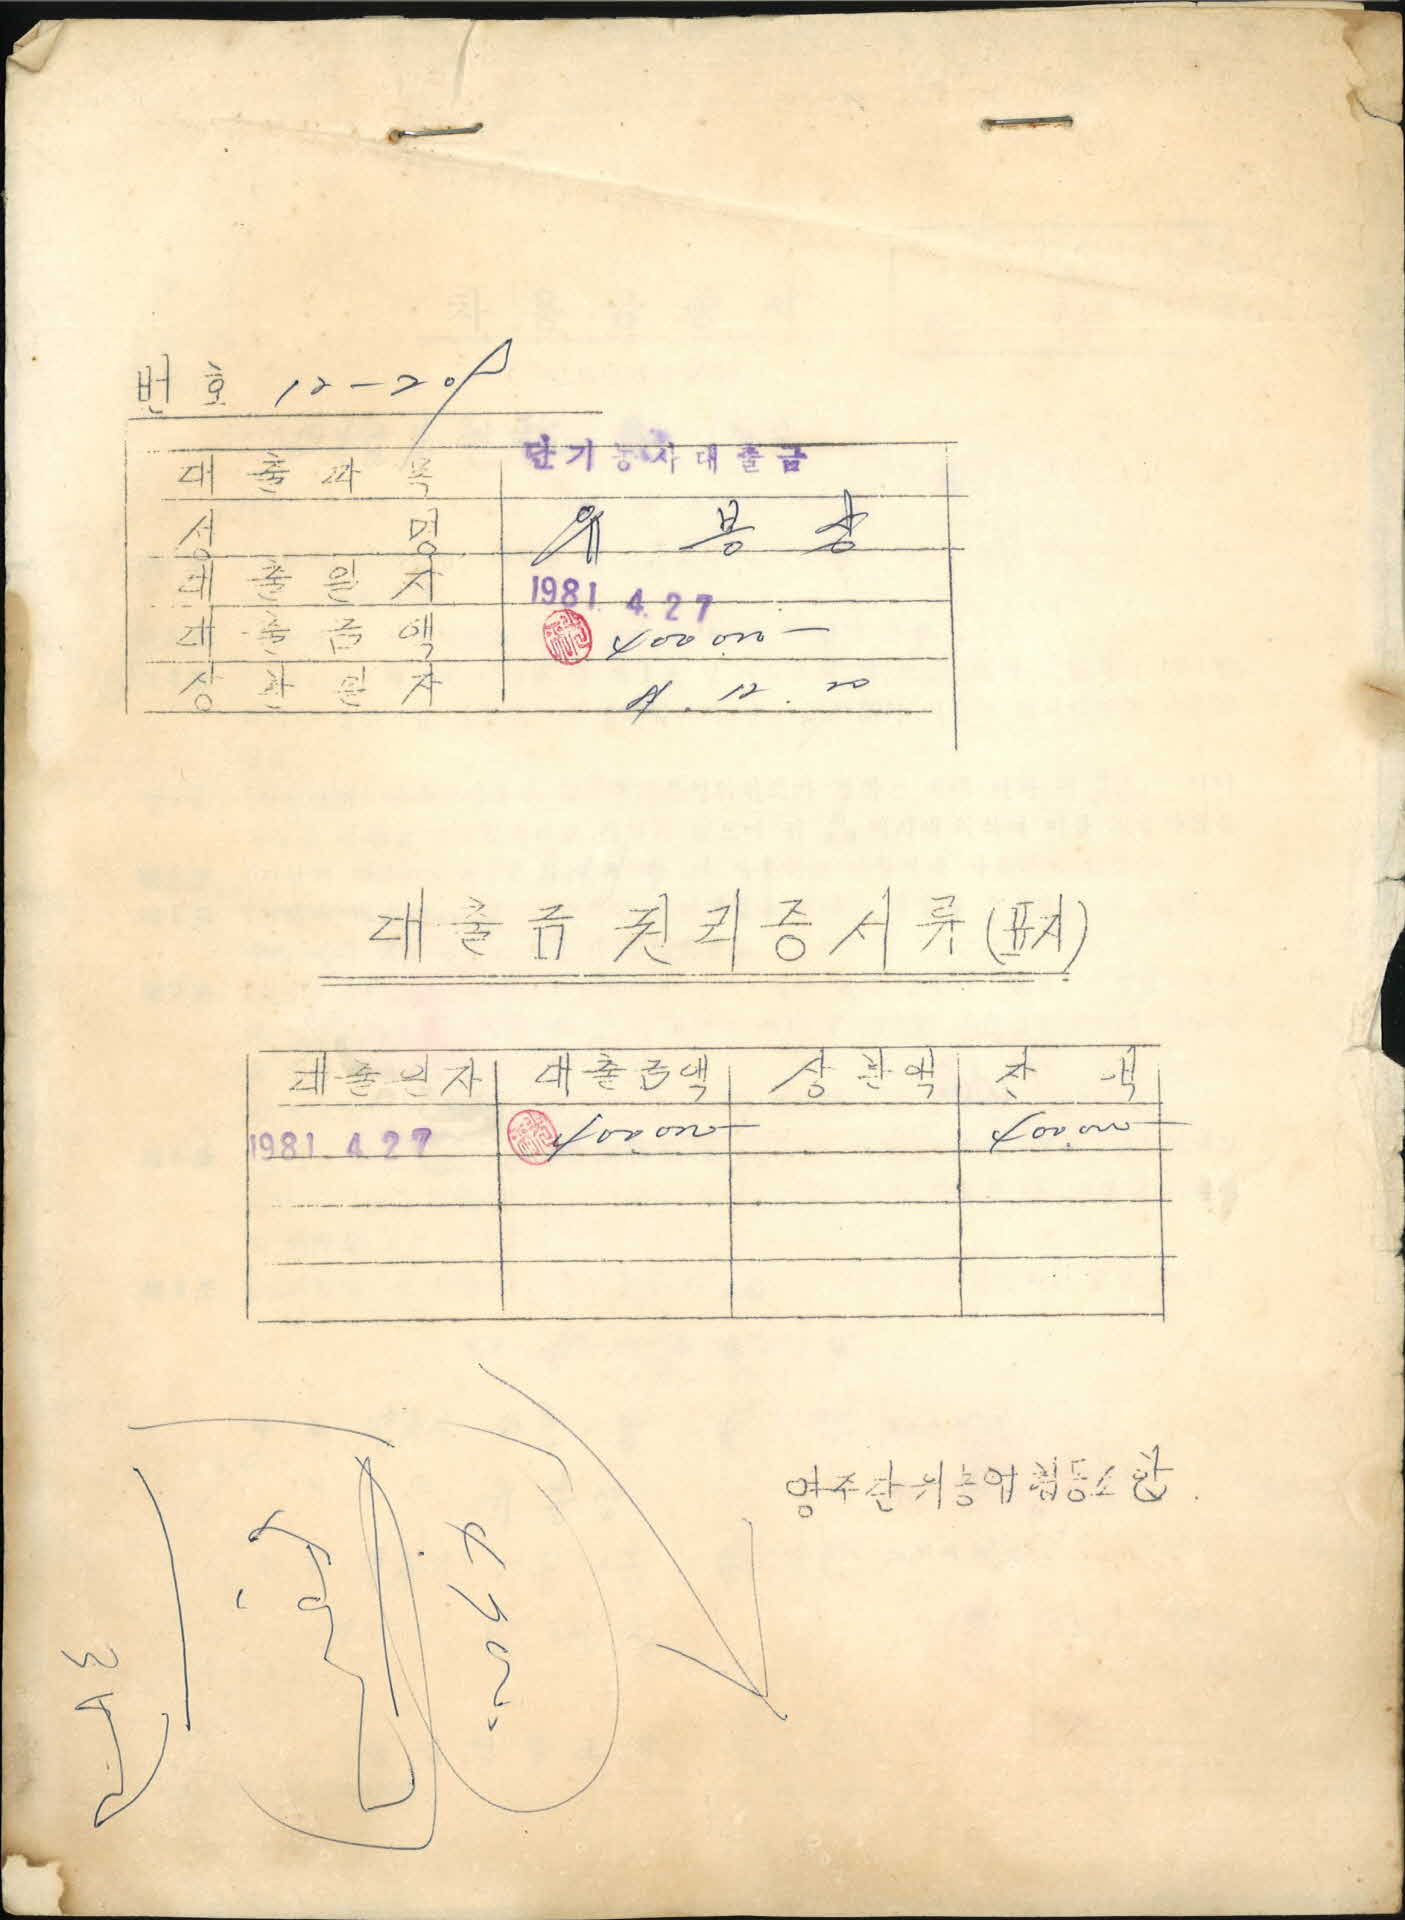 번호 12-208
대출과목 단기농사대출금
성명 위봉상
대출일자 1981. 4. 27
대출금액 400000-
상환일자 81. 12. 20
대출금 권리증서류(표지)
대출일자 대출금액 상환액 잔액
1981. 4. 27 400.000- 400.000-
양주단위농업협동조합.